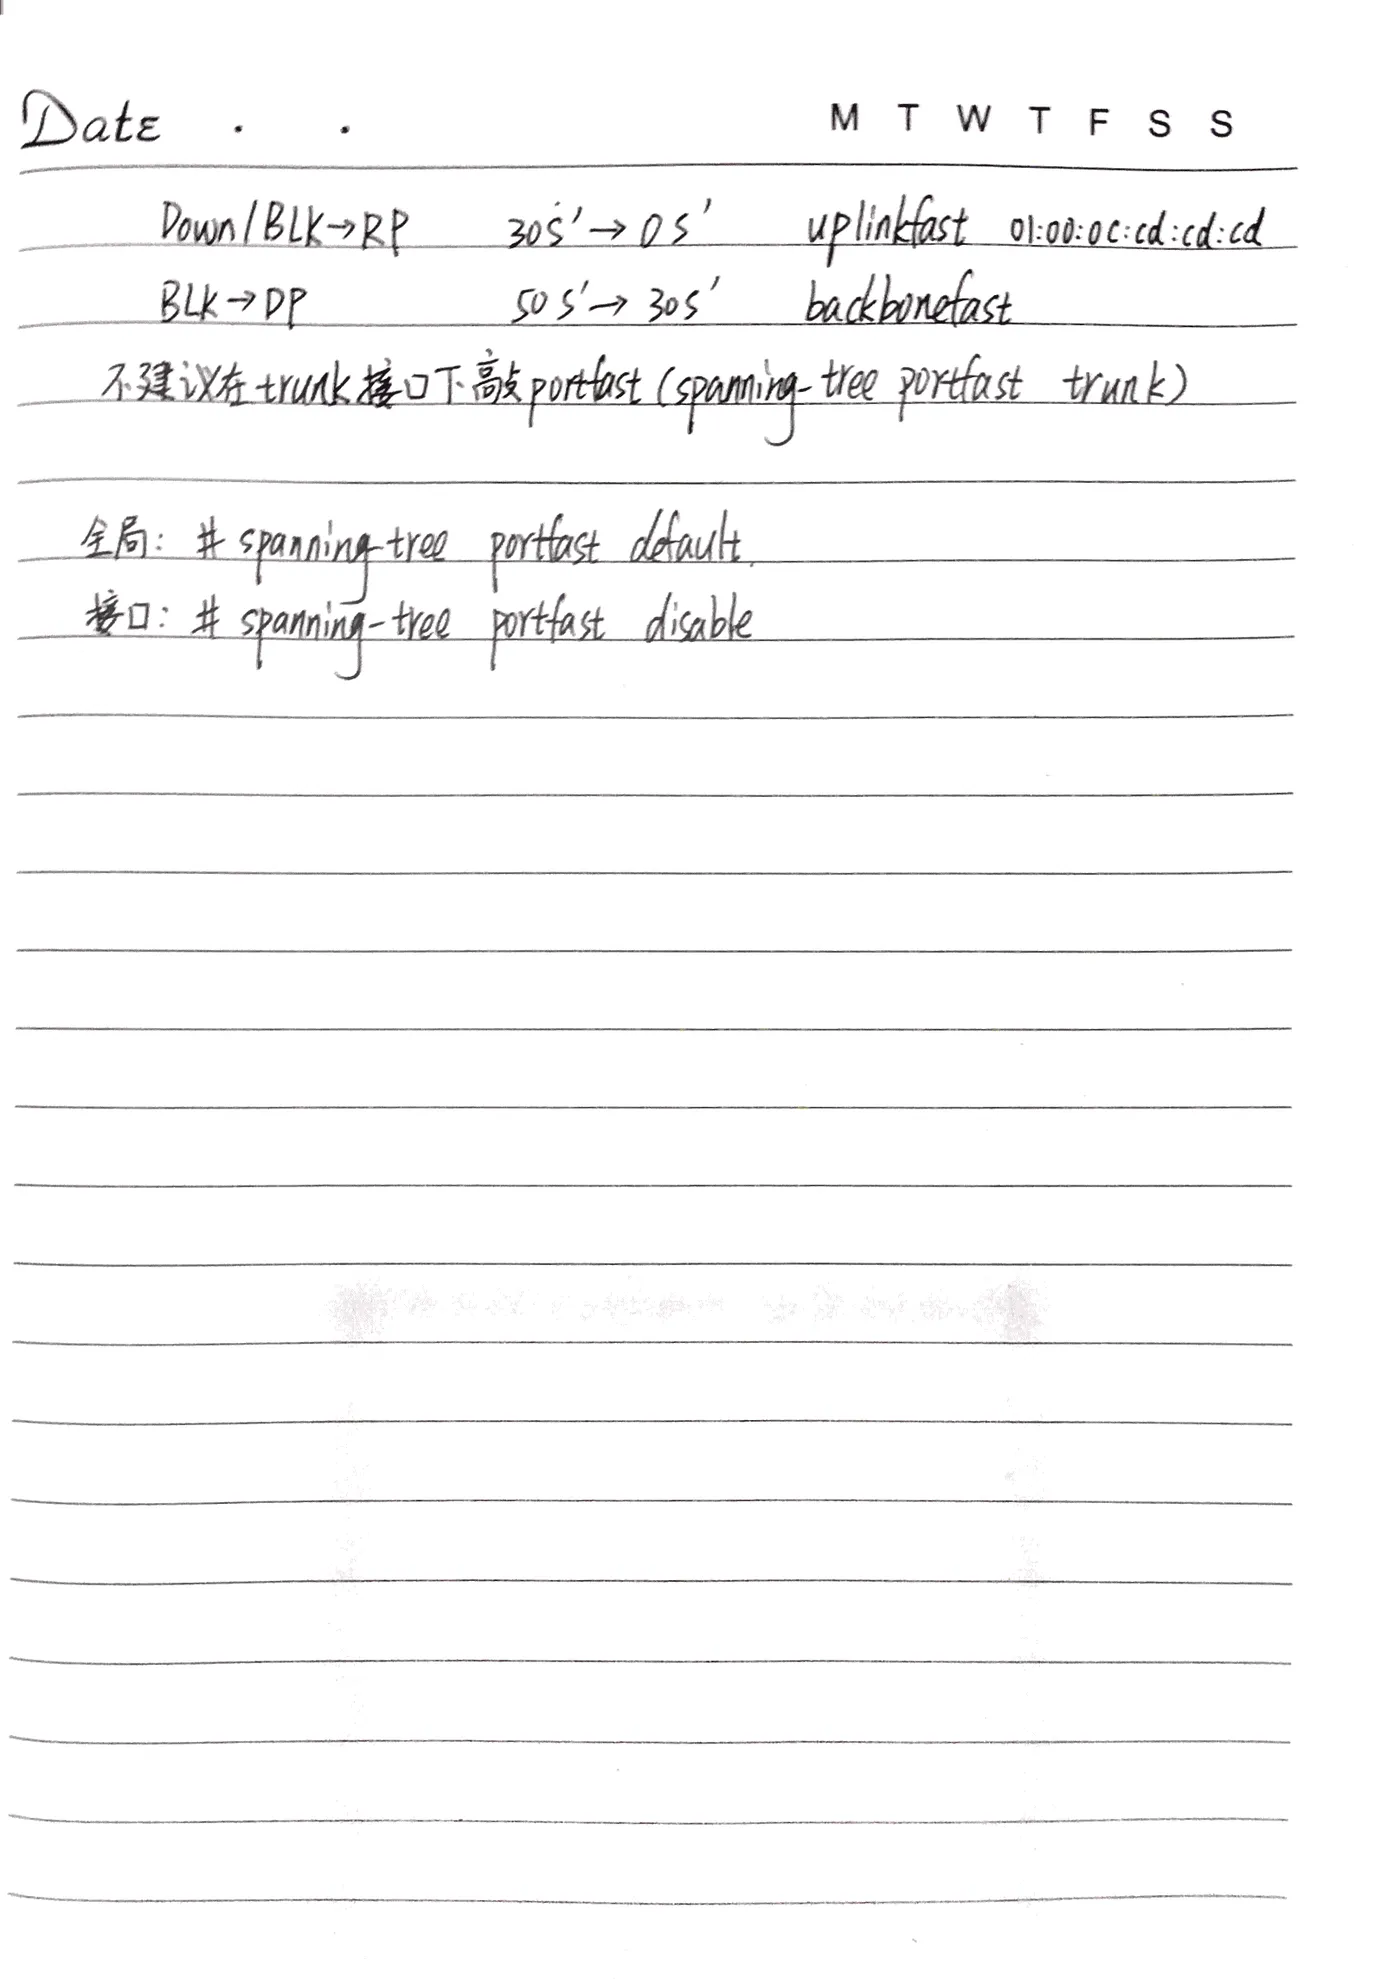 Date . . M T W T F S S
Down/BLK→RP 30s'→0s' uplinkfast 01:00:0c:cd:cd:cd
BLK→DP 50s'→30s' backbonefast
不建议在trunk接口下敲portfast(spanning-tree portfast trunk)
全局: # spanning-tree portfast default.
接口: # spanning-tree portfast disable